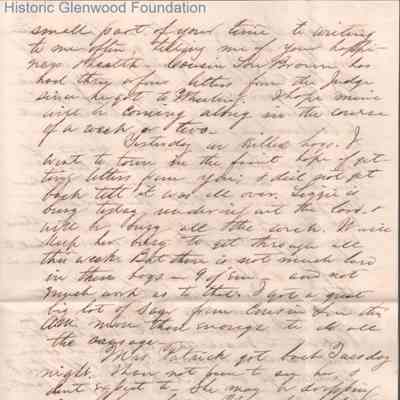 Historic Glenwood Foundation
small part of your time to writing
to me often, telling me of your happi-
ness & health. Cousin Lou Brown has
had three or four letters from the Judge
since he got to Wheeling. I hope mine
will be coming along in the course
of a week or two.
Yesterday we killed hogs. I
went to town in the faint hope of get-
ting letters from you & did not get
back till it was all over. Lizzie is
busy today rendering out the lard &
will be busy all the week. It will
keep her busy to get through all
this week. But there is not much lard
in these hogs - 9 of em - and not
much work as to that. I got a great
big lot of Sage from Cousin Lou
more than enough to do all
the sausage.
Mrs Patrick got back Tuesday
night. I have not been to see her, &
dont expect to. She may be dropping